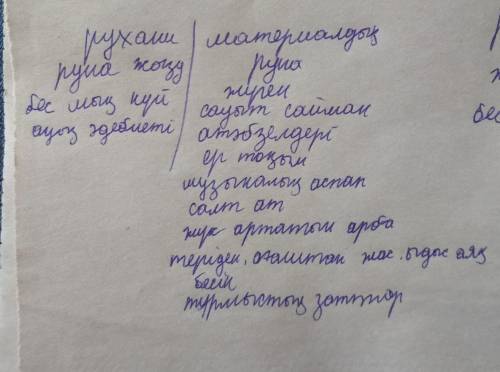 рухани
руна жазу
бес мың күй
ауыз әдебиеті
материалдық
руна
жүген
сауыт сайман
атәбзелдері
ер тоқым
музыкалық аспап
салт ат
жүк артатын арба
теріден, ағаштан жас. ыдыс аяқ
бесік
тұрмыстық заттар
бес